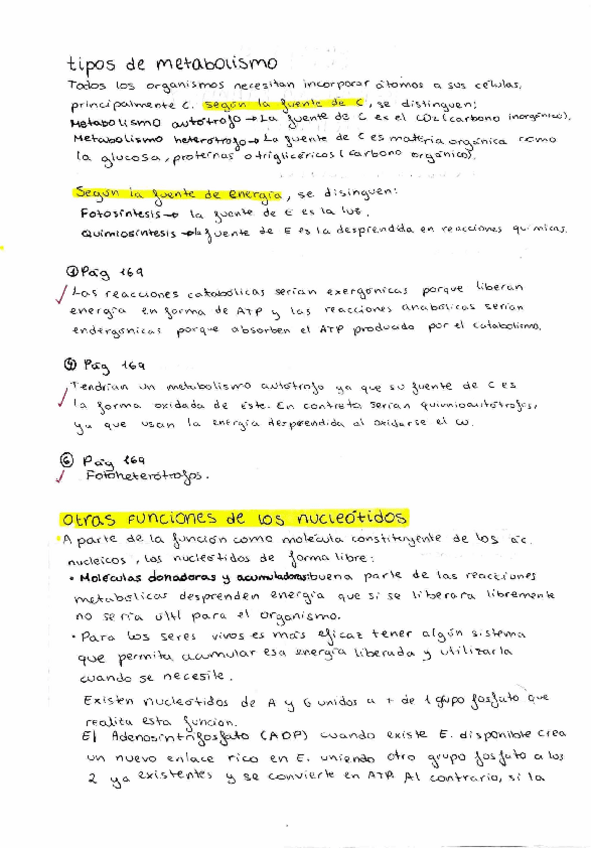 tipos de metabolismo
Todos los organismos necesitan incorporar átomos a sus células,
principalmente C. Según la fuente de C, se distinguen:
Metabolismo autótrofo → La fuente de C es el CO2 (carbono inorgánico).
Metabolismo heterótrofo → La fuente de C es materia orgánica como
la glucosa, proteínas o triglicéricos (carbono orgánico).
Según la fuente de energía, se disinguen:
Fotosíntesis → la fuente de E es la luz.
Quimiosíntesis → la fuente de E es la desprendida en reacciones químicas.
① Pág 169
Las reacciones catabólicas serían exergónicas porque liberan
energía en forma de ATP y las reacciones anabólicas serían
endergónicas porque absorben el ATP producido por el catabolismo.
④ Pág 169
Tendrían un metabolismo autótrofo ya que su fuente de C es
la forma oxidada de éste. En contreto serían quimioautótrofos,
ya que usan la energía desprendida al oxidarse el
⑥ Pág 169
Fotoheterótrofos.
Otras funciones de los nucleótidos
A parte de la función como molécula constituyente de los ác.
nucleicos, los nucleótidos de forma libre:
• Moléculas donadoras y acumuladoras: buena parte de las reacciones
metabólicas desprenden energía que si se liberara libremente
no sería útil para el organismo.
• Para los seres vivos es más eficaz tener algún sistema
que permita acumular esa energía liberada y utilizarla
cuando se necesite.
Existen nucleótidos de A y G unidos a + de 1 grupo fosfato que
realiza esta función.
El Adenosintrifosfato (ADP) cuando existe E. disponible crea
un nuevo enlace rico en E. uniendo otro grupo fosfato a los
2 ya existentes y se convierte en ATP. Al contrario, si la